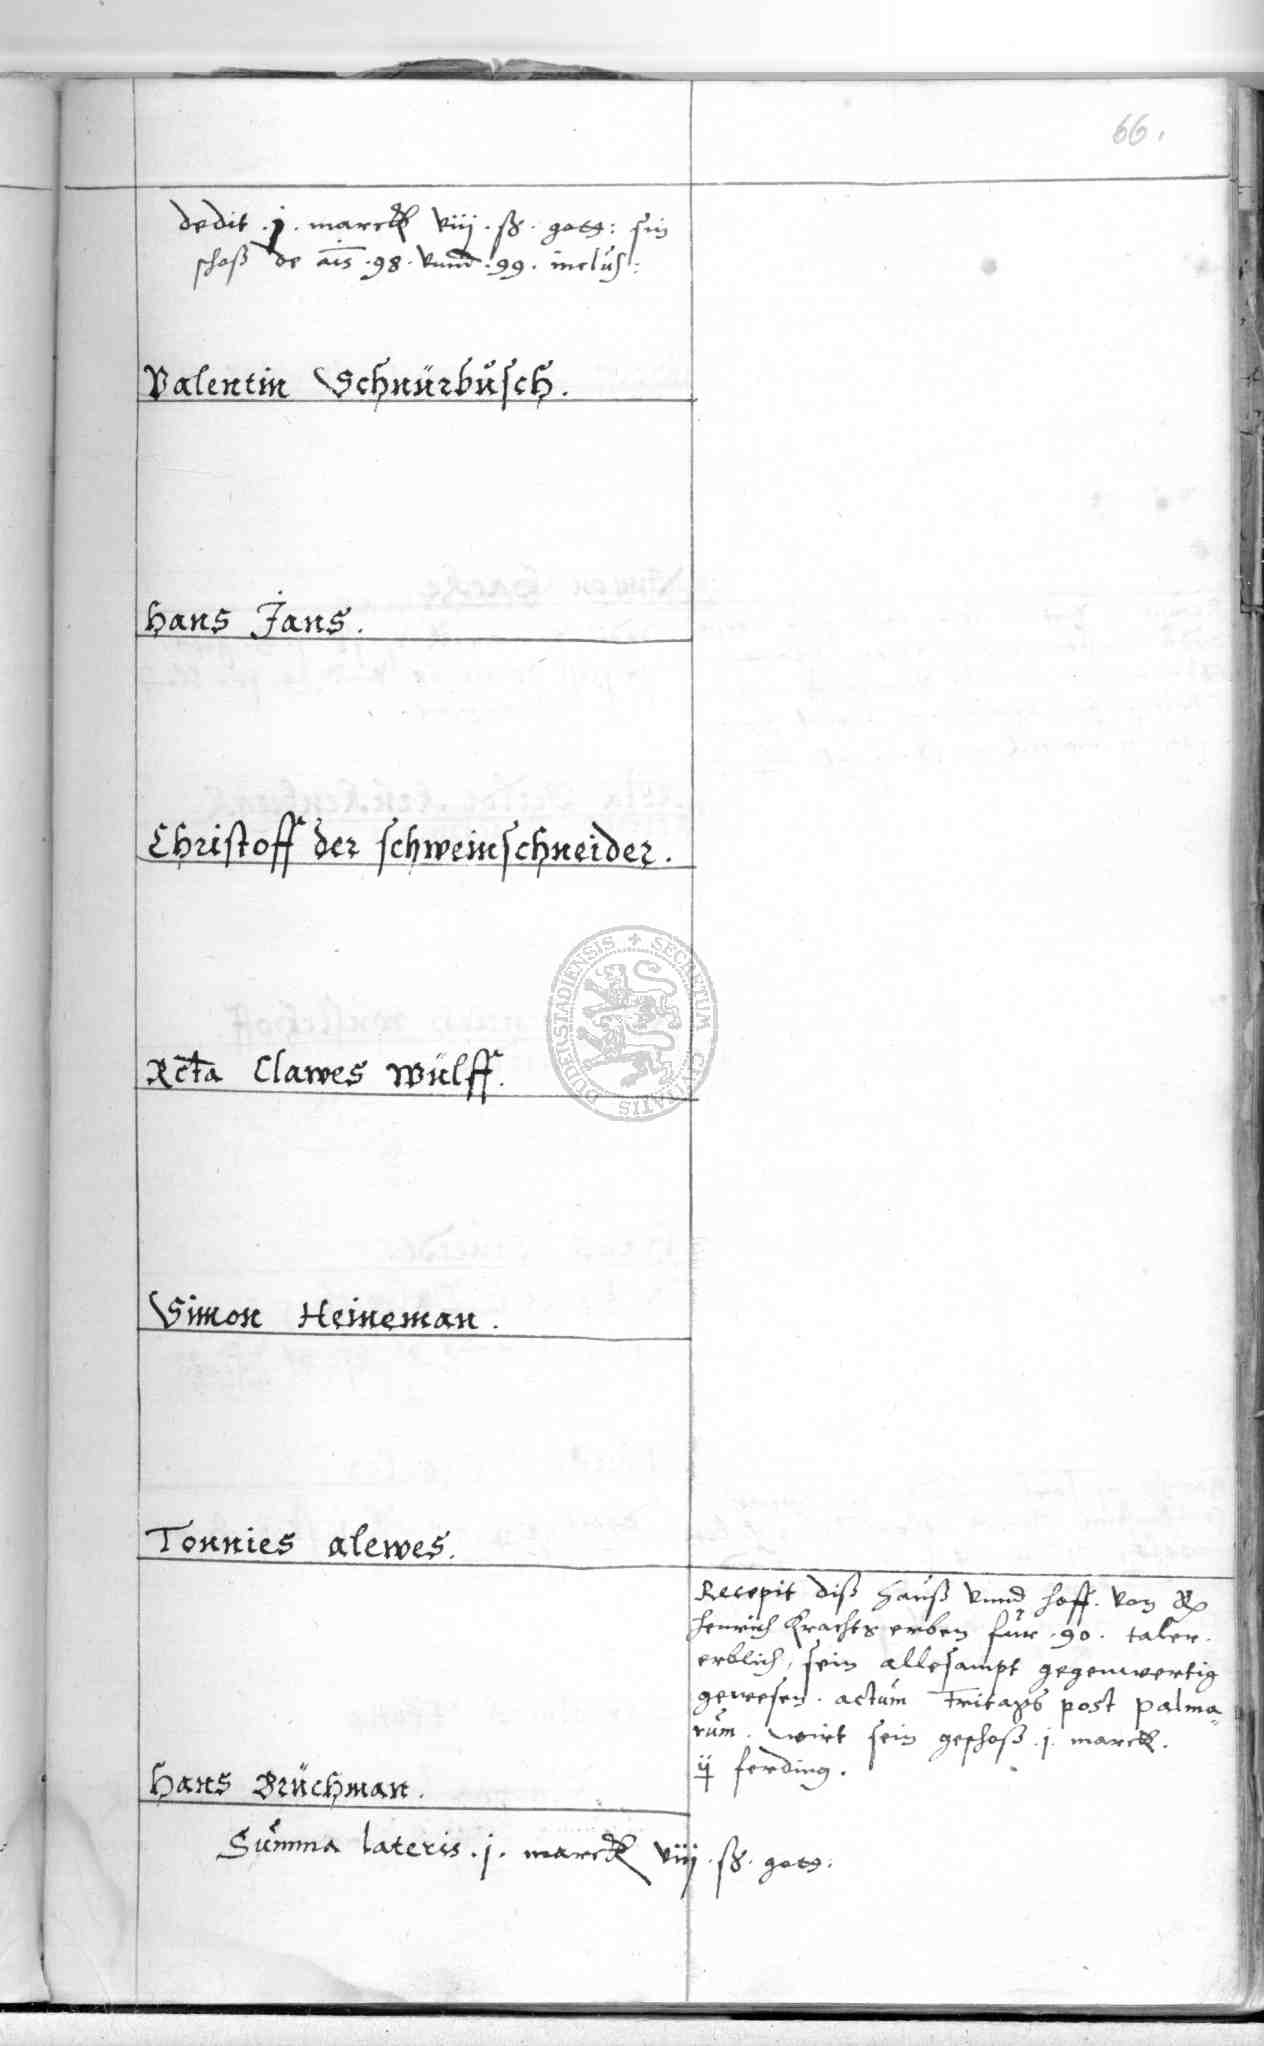 66.
dedit .j. marck viij. ß. gots: sin
schoß de ais .98. vnnd .99. inclus:
Valentin Schnürbusch.
Hans Jans.
Christoff der schweinschneider.
Rcta Clawes Wulff.
SECRETUM CIVITATIS DUDERSTADIENSIS
Simon Heineman.
Tonnies alewes.
Recepit diß hauß vnnd hoff. von
henrich Krachts erben fur .90. taler.
erblich, sein allesampt gegenwertig
gewesen. actum freitags post palma
rum. wirt sein geschoß .j. marck.
ij ferding.
Hans Brüchman.
Summa lateris .j. marck viij. ß. gots: